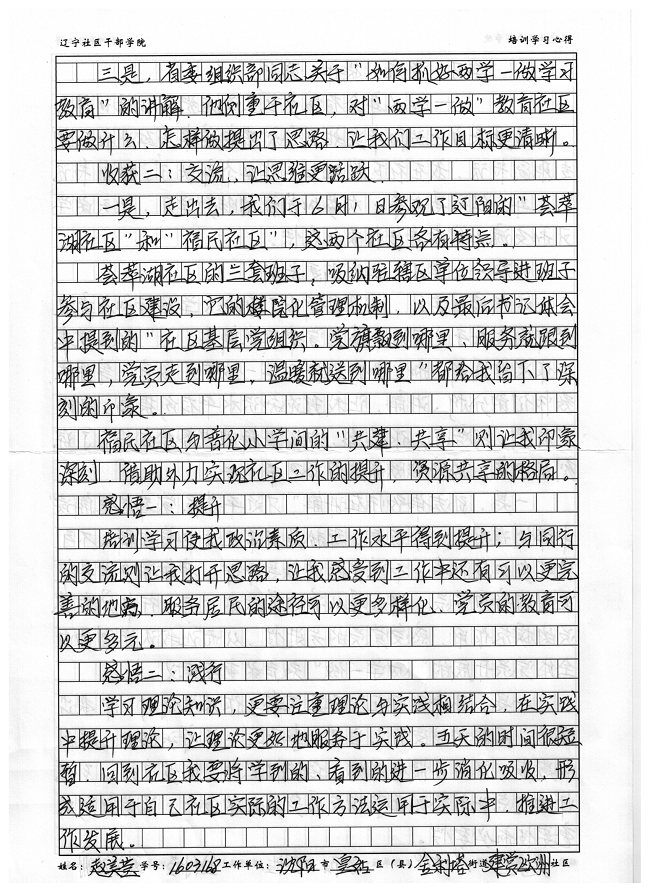 辽宁社区干部学院 培训学习心得
三是，省委组织部同志关于"如何抓好两学一做学习
教育"的讲解.他侧重于社区，对"两学一做"教育社区
要做什么.怎样做提出了思路.让我们工作目标更清晰。
收获二：交流，让思维更活跃
一是，走出去，我们于6月1日参观了辽阳的"荟萃
湖社区"和"福民社区"，这两个社区各有特点。
荟萃湖社区的三套班子，吸纳驻辖区单位领导进班子
参与社区建设，它的楼院化管理机制，以及最后书记体会
中提到的"社区基层党组织.党旗飘到哪里、服务就跟到
哪里，党员走到哪里，温暖就送到哪里"都给我留下了深
刻的印象。
福民社区与普化小学间的"共建·共享"则让我印象
深刻.借助外力实现社区工作的提升，资源共享的格局。
感悟一：提升
培训学习使我政治素质.工作水平得到提升；与同行
的交流则让我打开思路，让我感受到工作中还有可以更完
善的地方.服务居民的途径可以更多样化.党员的教育可
以更多元。
感悟二：践行
学习理论知识，更要注重理论与实践相结合，在实践
中提升理论，让理论更好地服务于实践。五天的时间很短
暂.回到社区我要将学到的、看到的进一步消化吸收，形
成适用于自己社区实际的工作方法运用于实际中，推进工
作发展。
姓名：赵美芸 学号：1603168 工作单位：沈阳市皇姑区（县）金利塔街道 社区